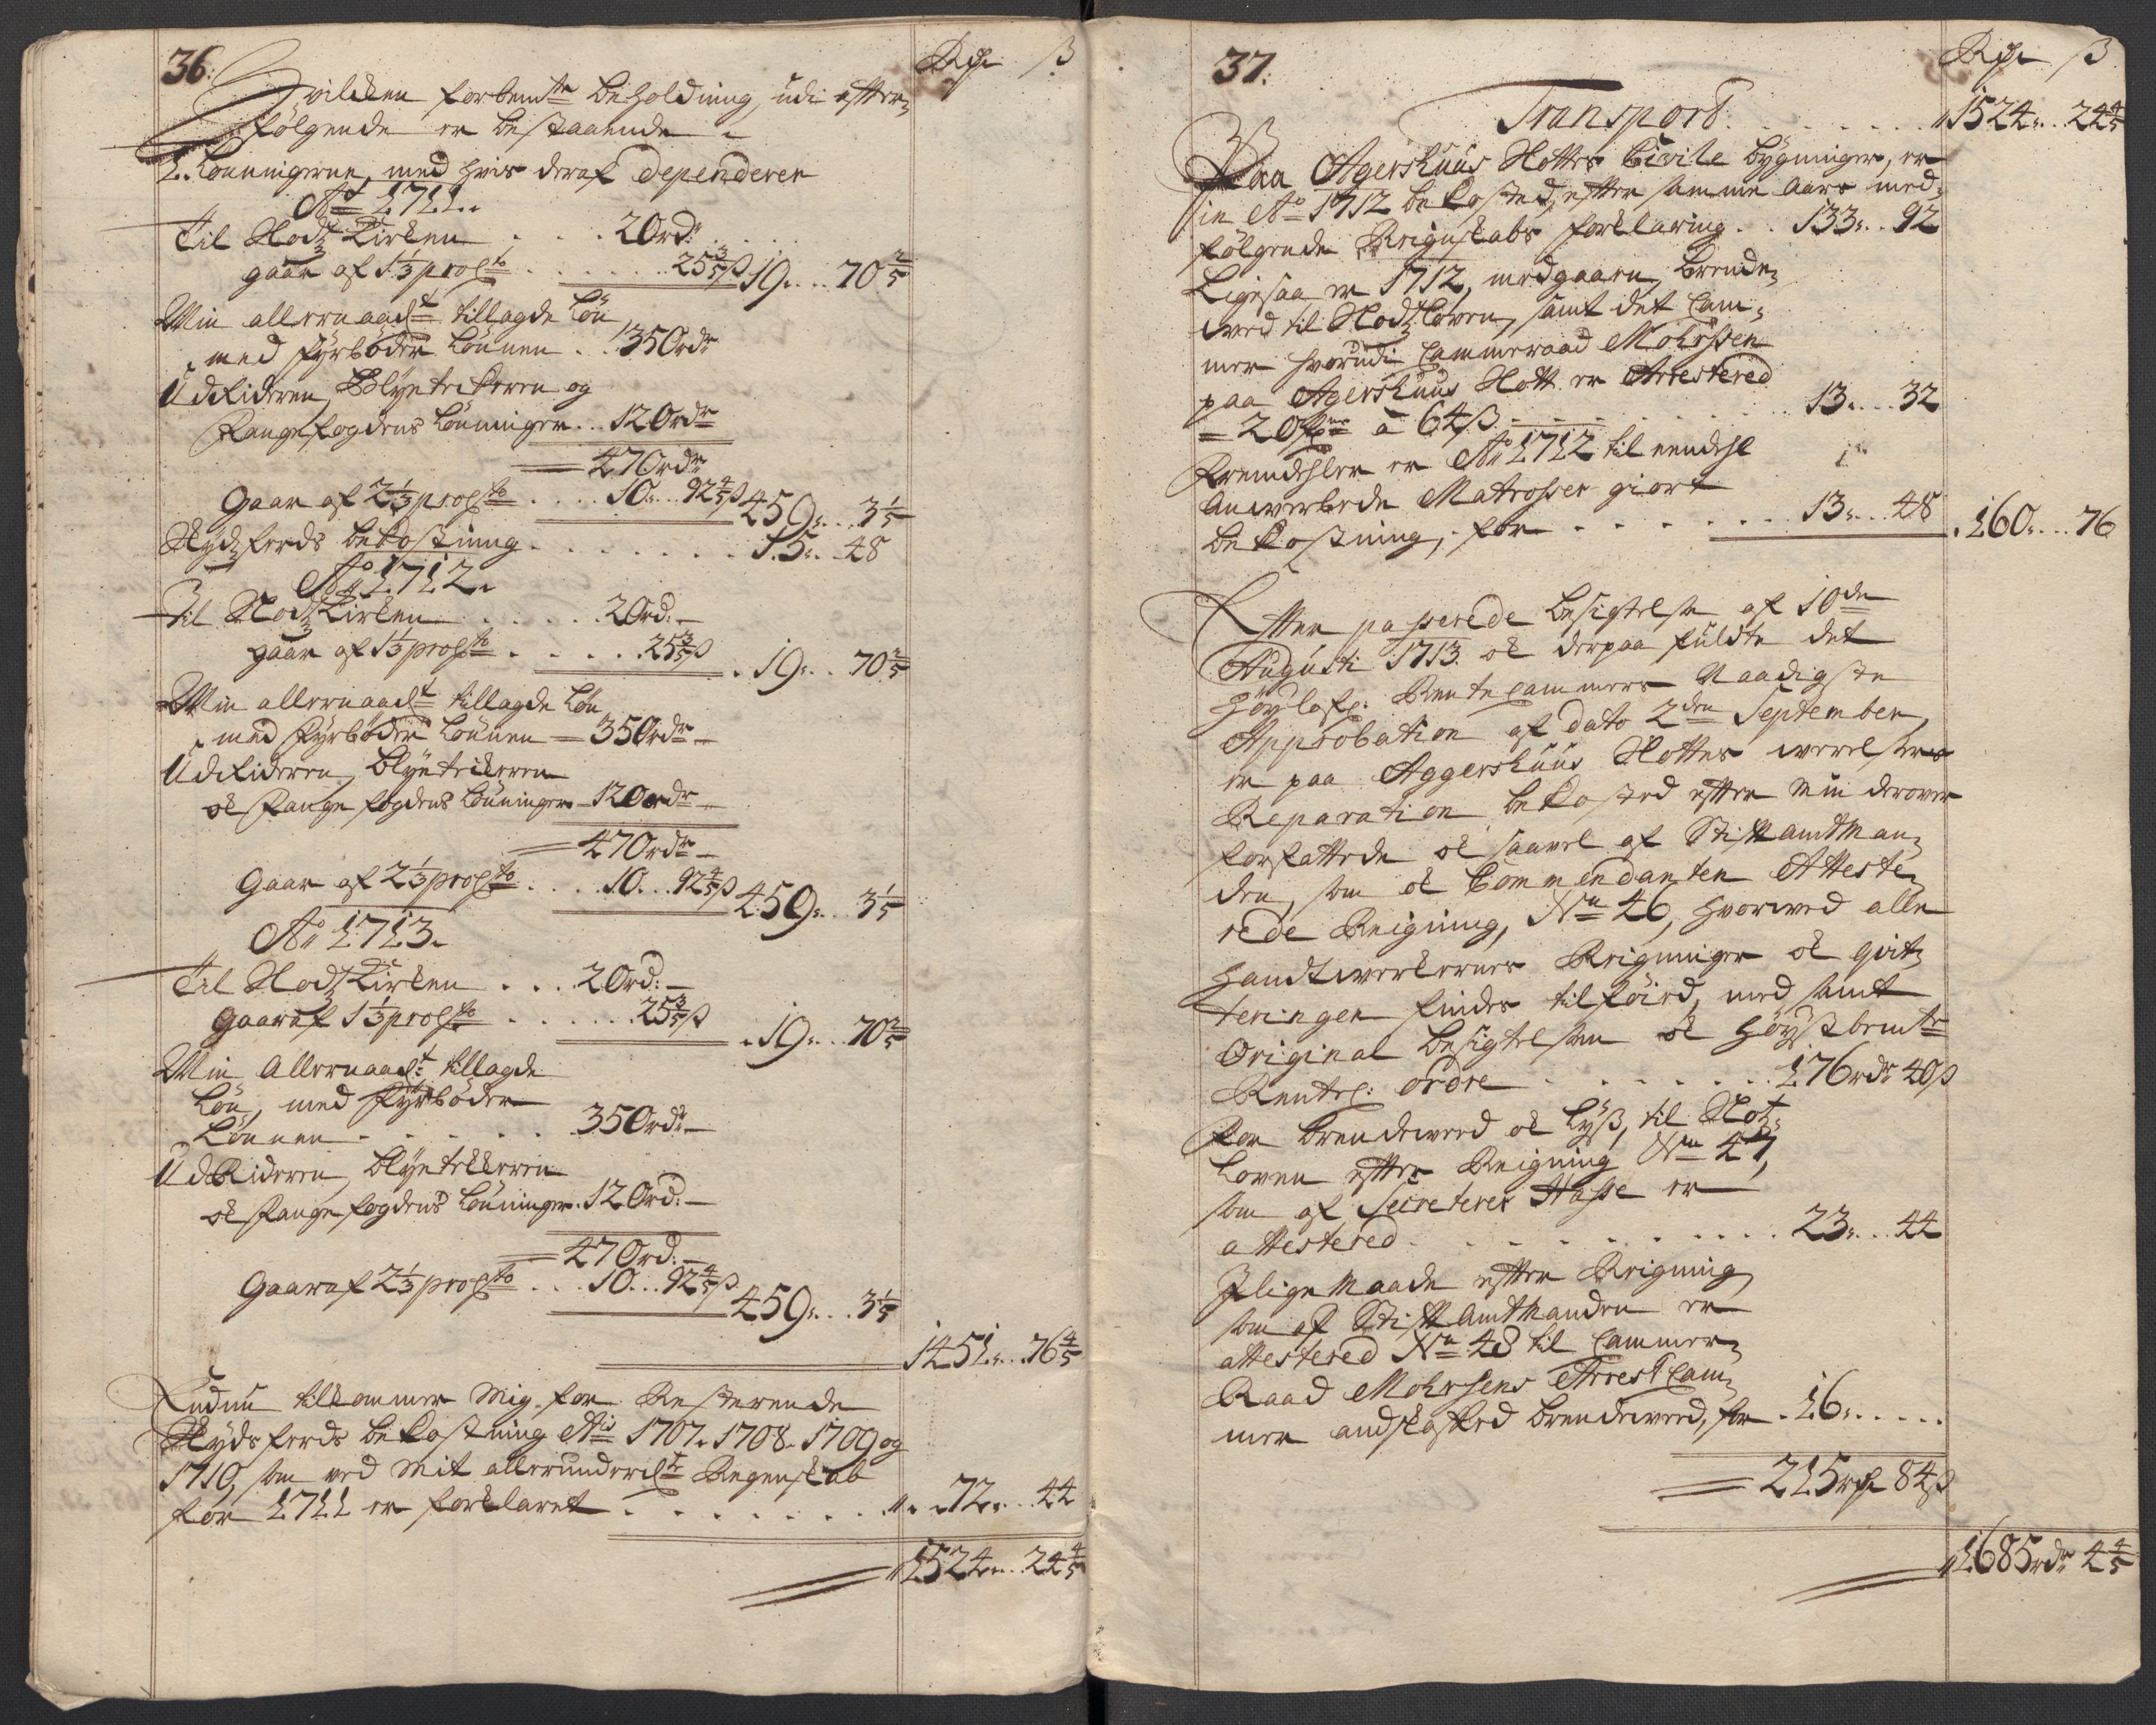 36.
Rdr ß
Hvilken forbemte Beholdning, udi effter-
følgende er bestaaende
1. Lønningerne, med hvis deraf dependerer
Ao 1711.
Til Slodtz Kirken . . . 20 rd:
gaar af 1⅓ proCto . . . . . 25 3/5 ß 19 . . . 70 2/5
Min allernaadt tillagde Løn
med Fyrbøder Lønnen . . 350 rdr
Udrideren, Blytekkeren og
Fangefogdens Lønninger . . 120 rdr
470 rdr
Gaar af 2⅓ proCto . . . . 10 . . . 92 4/5 ß 459 . . . 3 1/5
Skydzferds bekostning . . . . . . . 15 . . 48
Ao 1712.
Til Slodtz Kirken . . . . . 20 rd.
gaar af 1⅓ proCto . . . . . 25 3/5 ß
. 19 . . . 70 2/5
Min allernaadt tillagde Løn
med Fyrbøder Lønnen 350 rdr
Udrideren, Blytekkeren
ok Fange fogdens Lønninger 120 rdr
470 rdr
Gaar af 2⅓ proCto . . . . 10 . . . 92 4/5 ß 459 . . . 3 1/5
Ao 1713.
Til Slodtz Kirken . . . 20 rd:
Gaar af 1⅓ proCto . . . . . . 25 3/5 ß
. 19 . . . 70 2/5
Min Allernaadt tillagde
Løn, med Fyrbøder
Lønnen . . . . . . 350 rdr
UdRideren, Blytekkeren
ok Fange fogdens Lønninger . 120 rd:
470 rd:
Gaar af 2⅓ proCto . . . 10 . . . 92 4/5 ß
459 . . . 3 1/5
1451 . . . 76 4/5
Endnu tilkommer Mig for Resterende
Skydsferds bekostning Ais 1707. 1708. 1709 og
1710, som ved Mit allerunderdte Regenskab
for 1711 er forklaret . . . . . . . . 72 . . . 44
1524 . . . 24 4/5
37.
Rdr ß
Transport . . . . . . . 1524 . . 24 4/5
Paa Agershuus Slottes Civile bygninger, er
in Ao 1712 bekosted, effter samme Aars med-
følgende Reignskabs forklaring . . 133 . . 92
Ligesaa er 1712, medgaaen, Brende-
wed til Slodtzloven, samt det Cam-
mer hvorudi Cammeraad Mohrssen
paa Agershuus Slott er Arresterid
20 à 64 ß . . . . . . . . . . 13 . . . 32
Fremdeler er Ao 1712 til eendehl
Anwerbede Matrosser giort
bekostning, for . . . . . . . 13 . . . 48
160 . . . 76
Effter passerede besigtelse af 10de
Augusti 1713. ok derpaa fuldte det
Høylofl: Rente Cammers Naadigste
Approbation af dato 2den September,
er paa Aggershuus Slottes werelsers
Reparation bekosted effter min derover
forfattede ok saavel af Stifftamtman-
den, som ok Commendanten Atteste-
rede Reigning, No 46, hvorwed alle
Handtwerkernes Reigninger ok qvit-
teringer findes tilføied, med samt
Original besigtelsen ok høystbemte
Rentec: ordre . . . . . . . . 176 rdr 40 ß
For brendewed ok Lyß, til Slotz-
loven effter Reigning No 47,
som af Secreterer Hasse er
attestered . . . . . . . . . . . 23 . . . 44
Jlige Maade effter Reigning
som af StifftAmtManden er
attestered No 48 til Cammer-
Raad Mohrsens Arrest Cam-
mer andskaffed brendeweed, for . 16 . . . . .
215 rdr 84 ß
1685 rdr 4 4/5